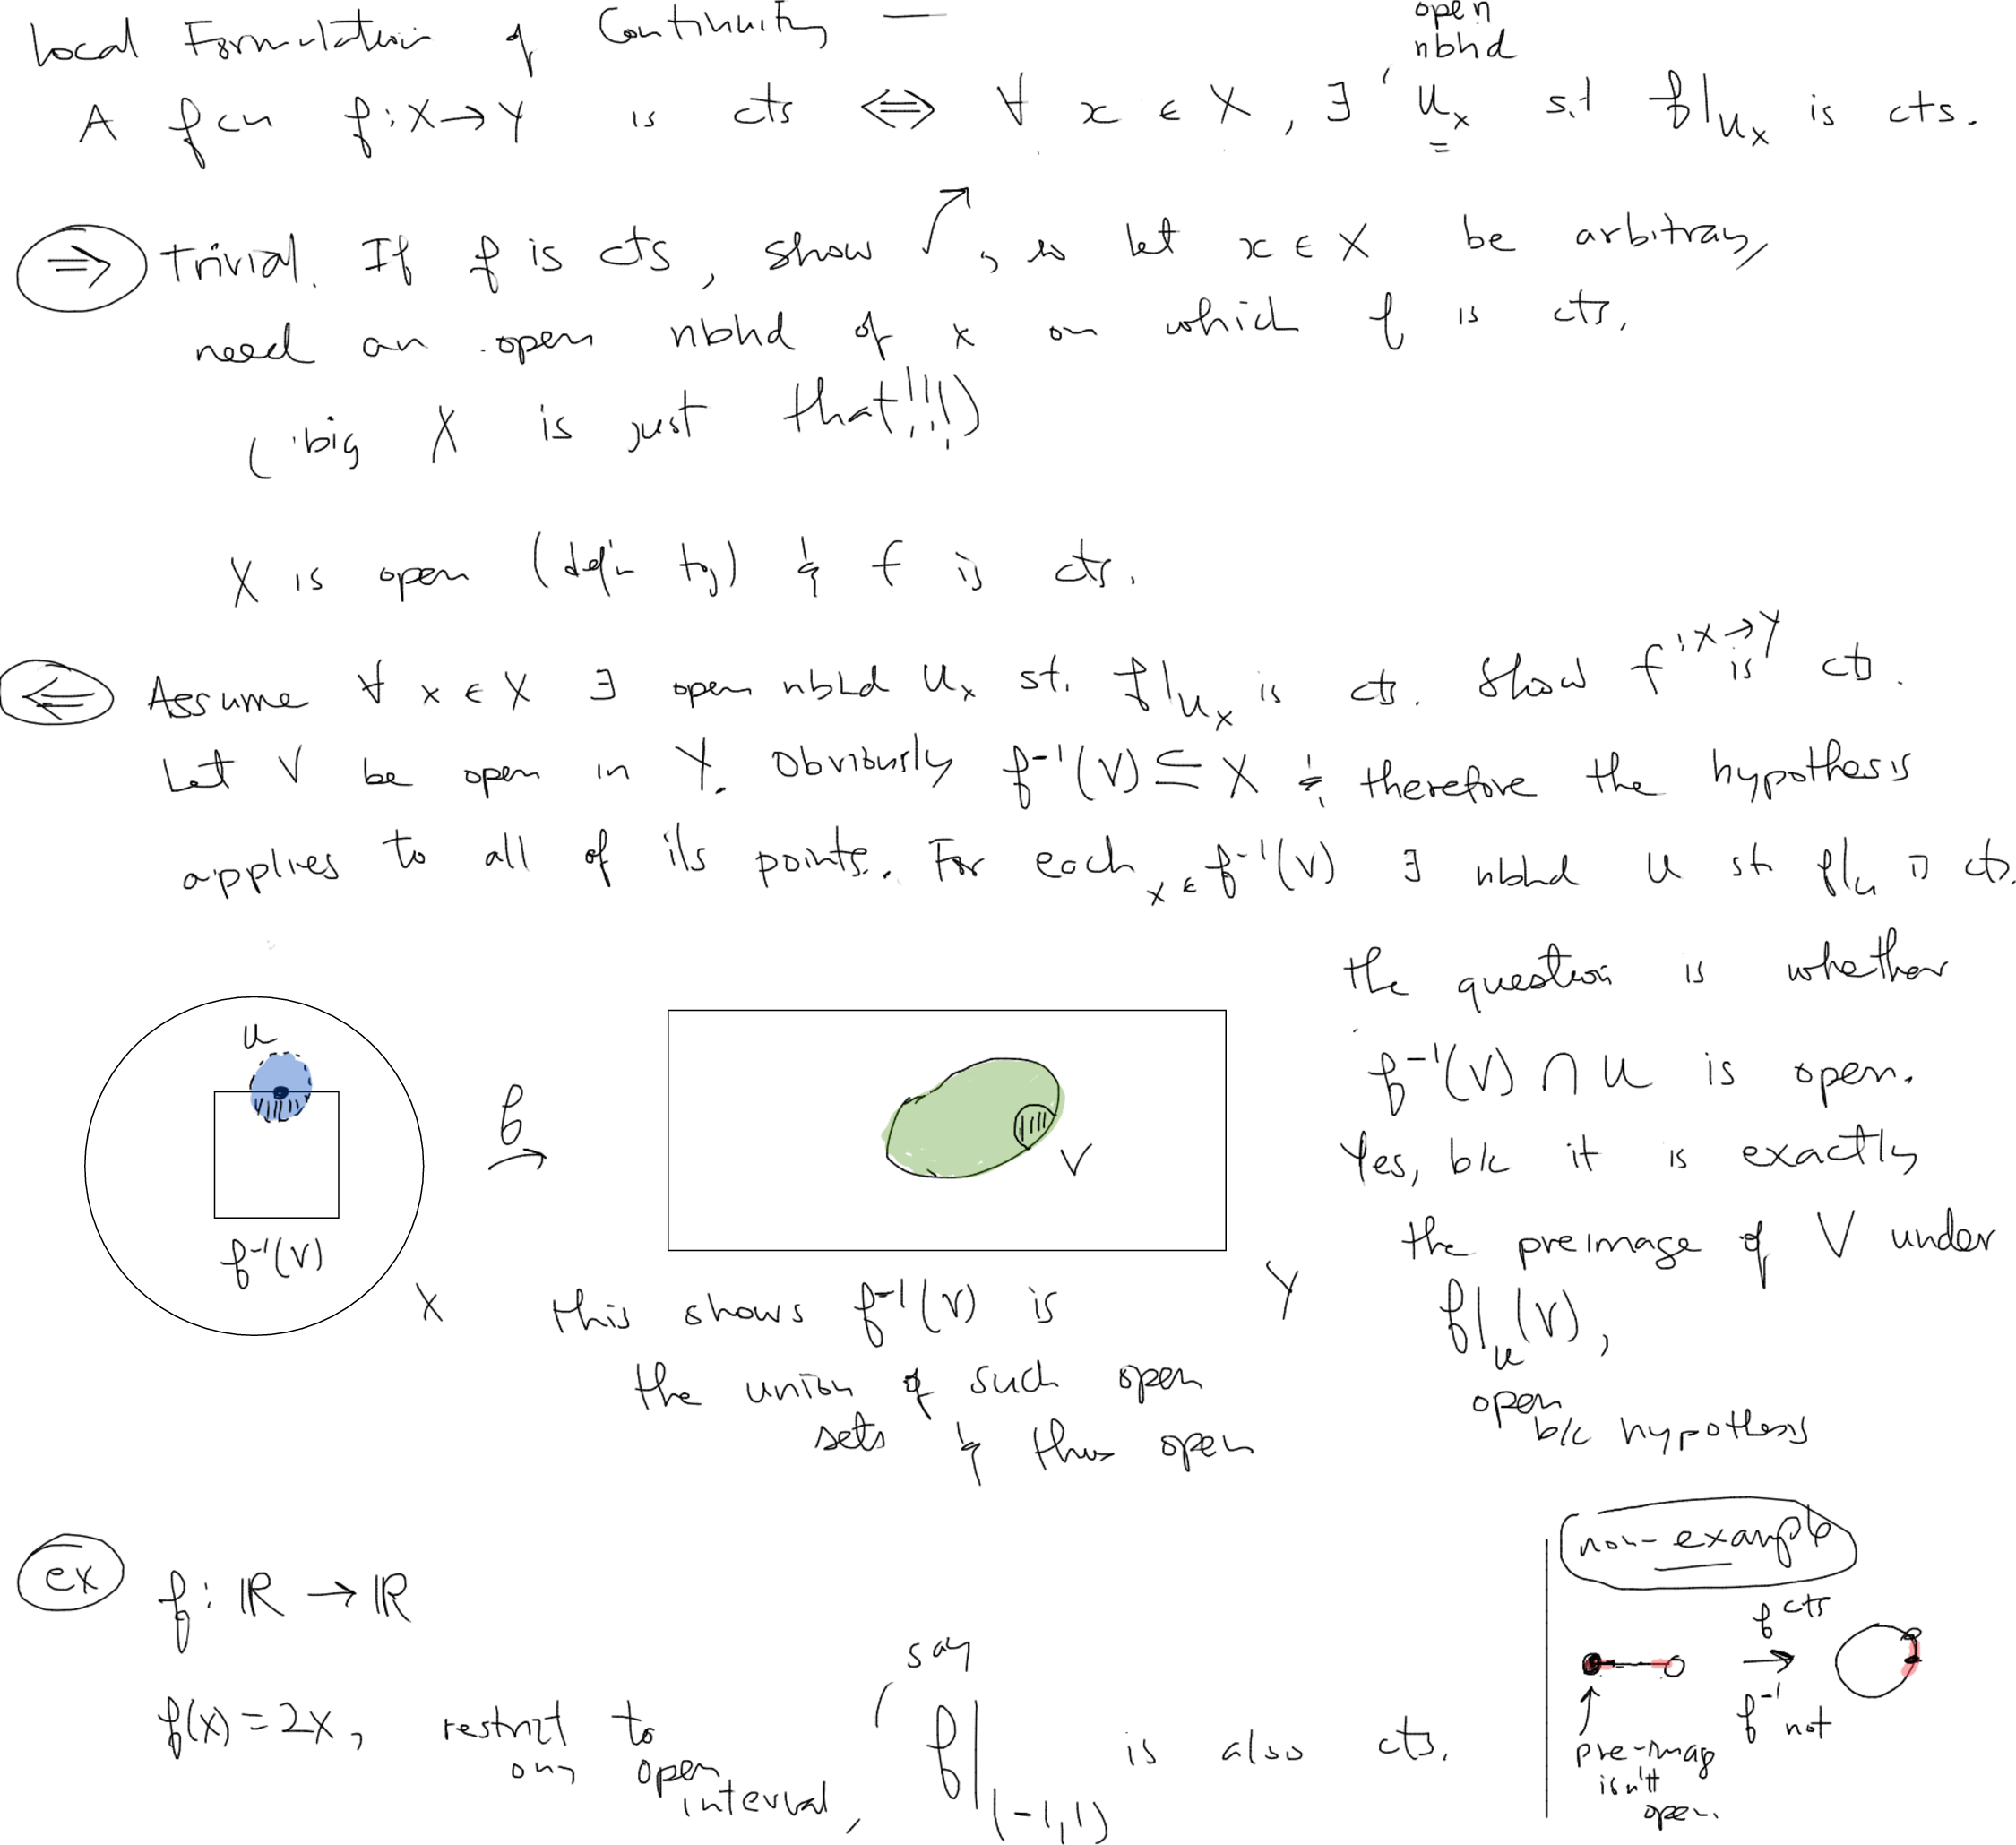 Local Formulation of Continuity —
open
nbhd
A fcn f: X → Y is cts ⟺ ∀ x ∈ X, ∃ U_x s.t f|_{U_x} is cts.
⇒ Trivial. If f is cts, show ↗, so let x ∈ X be arbitrary,
need an open nbhd of x on which f is cts.
(big X is just that!!!)
X is open (def'n top) & f is cts.
⇐ Assume ∀ x ∈ X ∃ open nbhd U_x st. f|_{U_x} is cts. Show f: X → Y is cts.
Let V be open in Y. Obviously f⁻¹(V) ⊆ X & therefore the hypothesis
applies to all of its points. For each x ∈ f⁻¹(V) ∃ nbhd U st f|_U is cts.
the question is whether
f⁻¹(V) ∩ U is open.
Yes, b/c it is exactly
the preimage of V under
f|_U (V),
open
b/c hypothesis
U
f⁻¹(V)
X
f
→
V
Y
this shows f⁻¹(V) is
the union of such open
sets & thus open
ex
f: ℝ → ℝ
f(x) = 2x, restrict to
any open
interval,
say
f|_{(-1,1)} is also cts.
non-example
f cts
→
f⁻¹ not
↑
pre-imag
isn't
open.